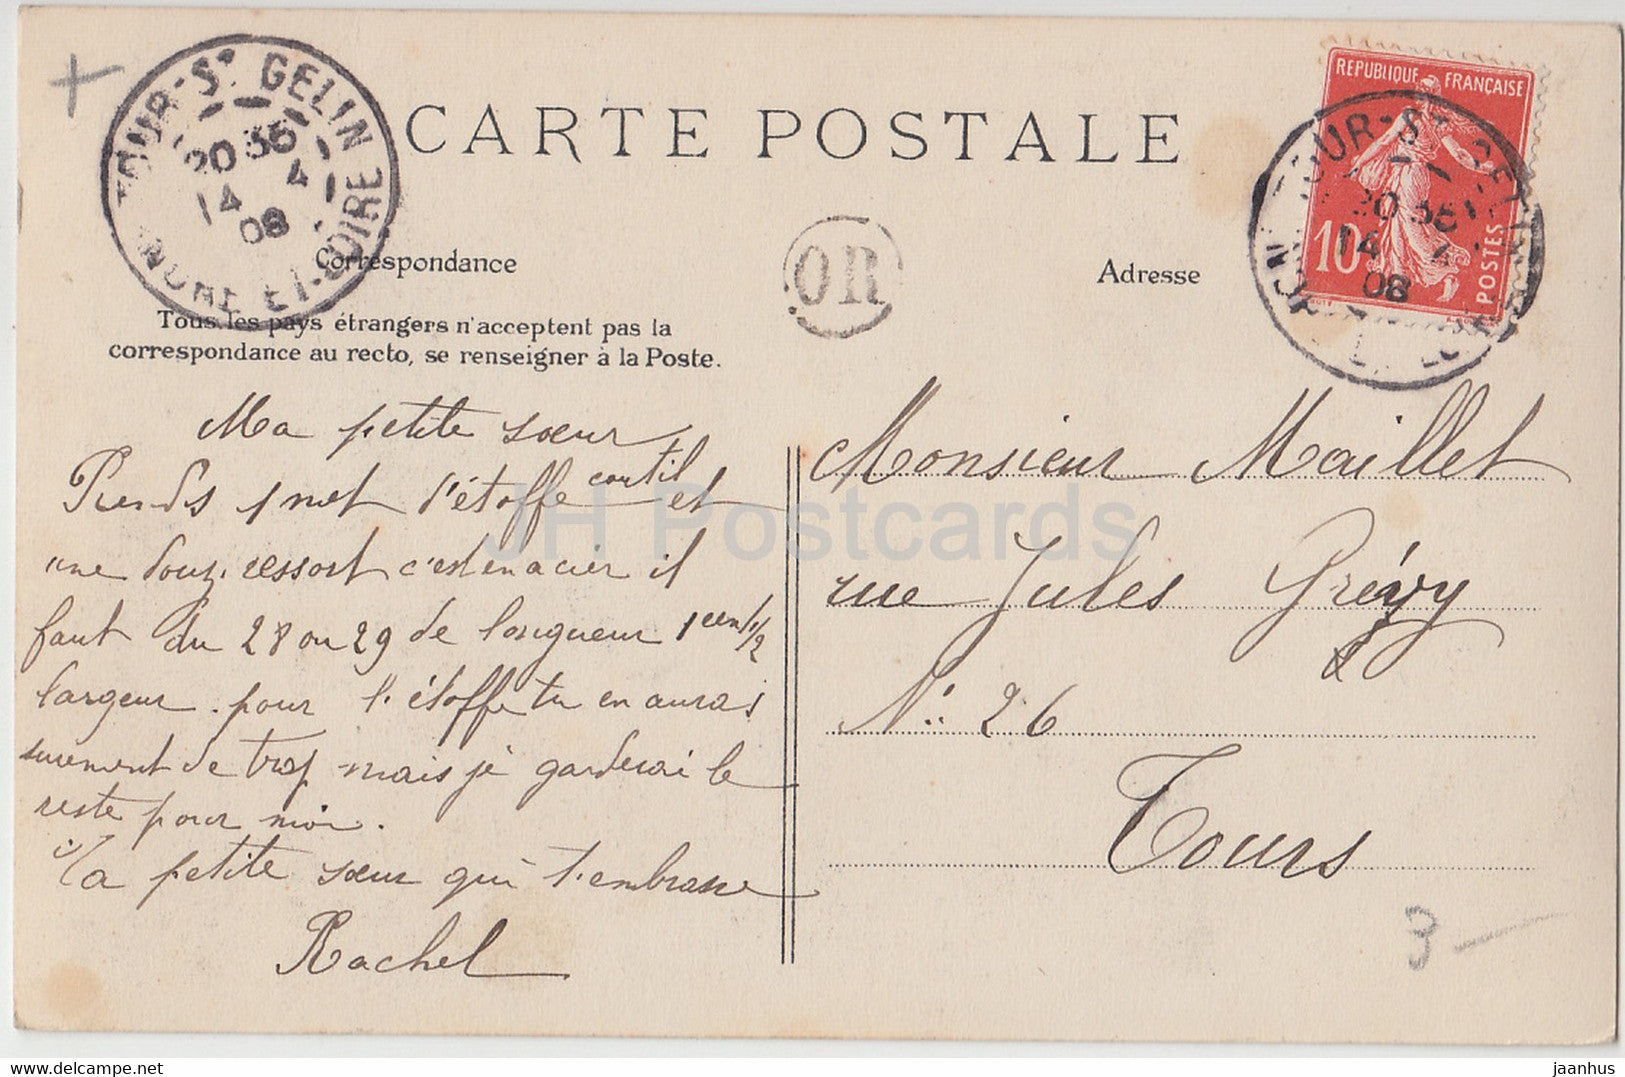 CARTE POSTALE
TOUR-St GELIN
20 35
14 4
08
INDRE ET-LOIRE
OR
REPUBLIQUE FRANÇAISE
10
POSTES
TOUR-St GELIN
20 35
14 4
08
Correspondance
Adresse
Tous les pays étrangers n'acceptent pas la
correspondance au recto, se renseigner à la Poste.
Ma petite sœur
Prends 1 met d'étoffe coutil et
une douz. ressort c'est en acier il
faut du 28 ou 29 de longueur 1 cem 1/2
largeur. pour l'étoffe tu en auras
surement de trop mais je garderai le
reste pour moi.
Ta petite sœur qui t'embrasse
Rachel
Monsieur Maillet
rue Jules Grévy
No: 26
Tours
3 —
JH Postcards
delcampe.net
jaanhus